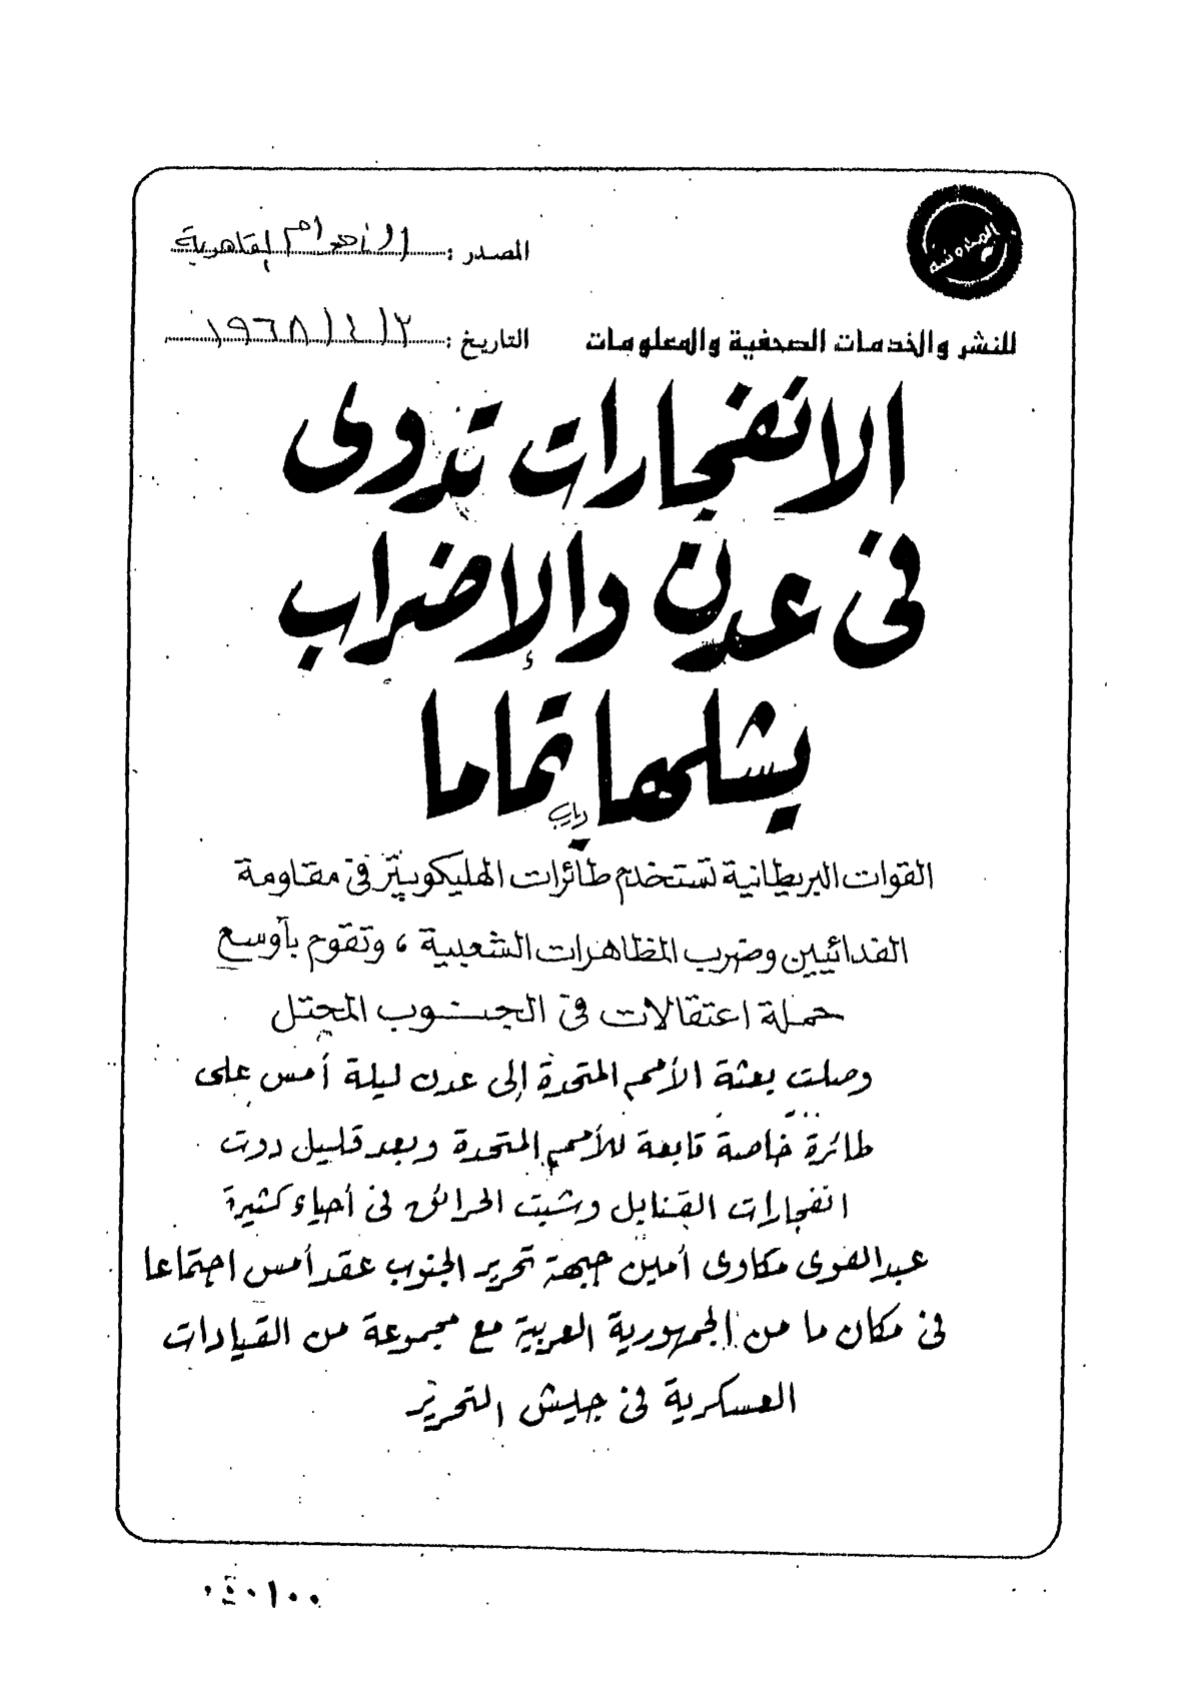 المحروسة
المصدر : الأهرام القاهرية
للنشر والخدمات الصحفية والمعلومات
التاريخ : ٢ / ٤ / ١٩٦٨
الانفجارات تدوى
فى عدن والإضراب
يشلها تماما
القوات البريطانية تستخدم طائرات الهليكوبيتر فى مقاومة
الفدائيين وضرب المظاهرات الشعبية ، وتقوم بأوسع
حملة اعتقالات فى الجنوب المحتل
وصلت بعثة الأمم المتحدة إلى عدن ليلة أمس على
طائرة خاصة تابعة للأمم المتحدة وبعد قليل دوت
انفجارات القنابل وشبت الحرائق فى أحياء كثيرة
عبد القوى مكاوى أمين جبهة تحرير الجنوب عقد أمس اجتماعا
فى مكان ما من الجمهورية العربية مع مجموعة من القيادات
العسكرية فى جيش التحرير